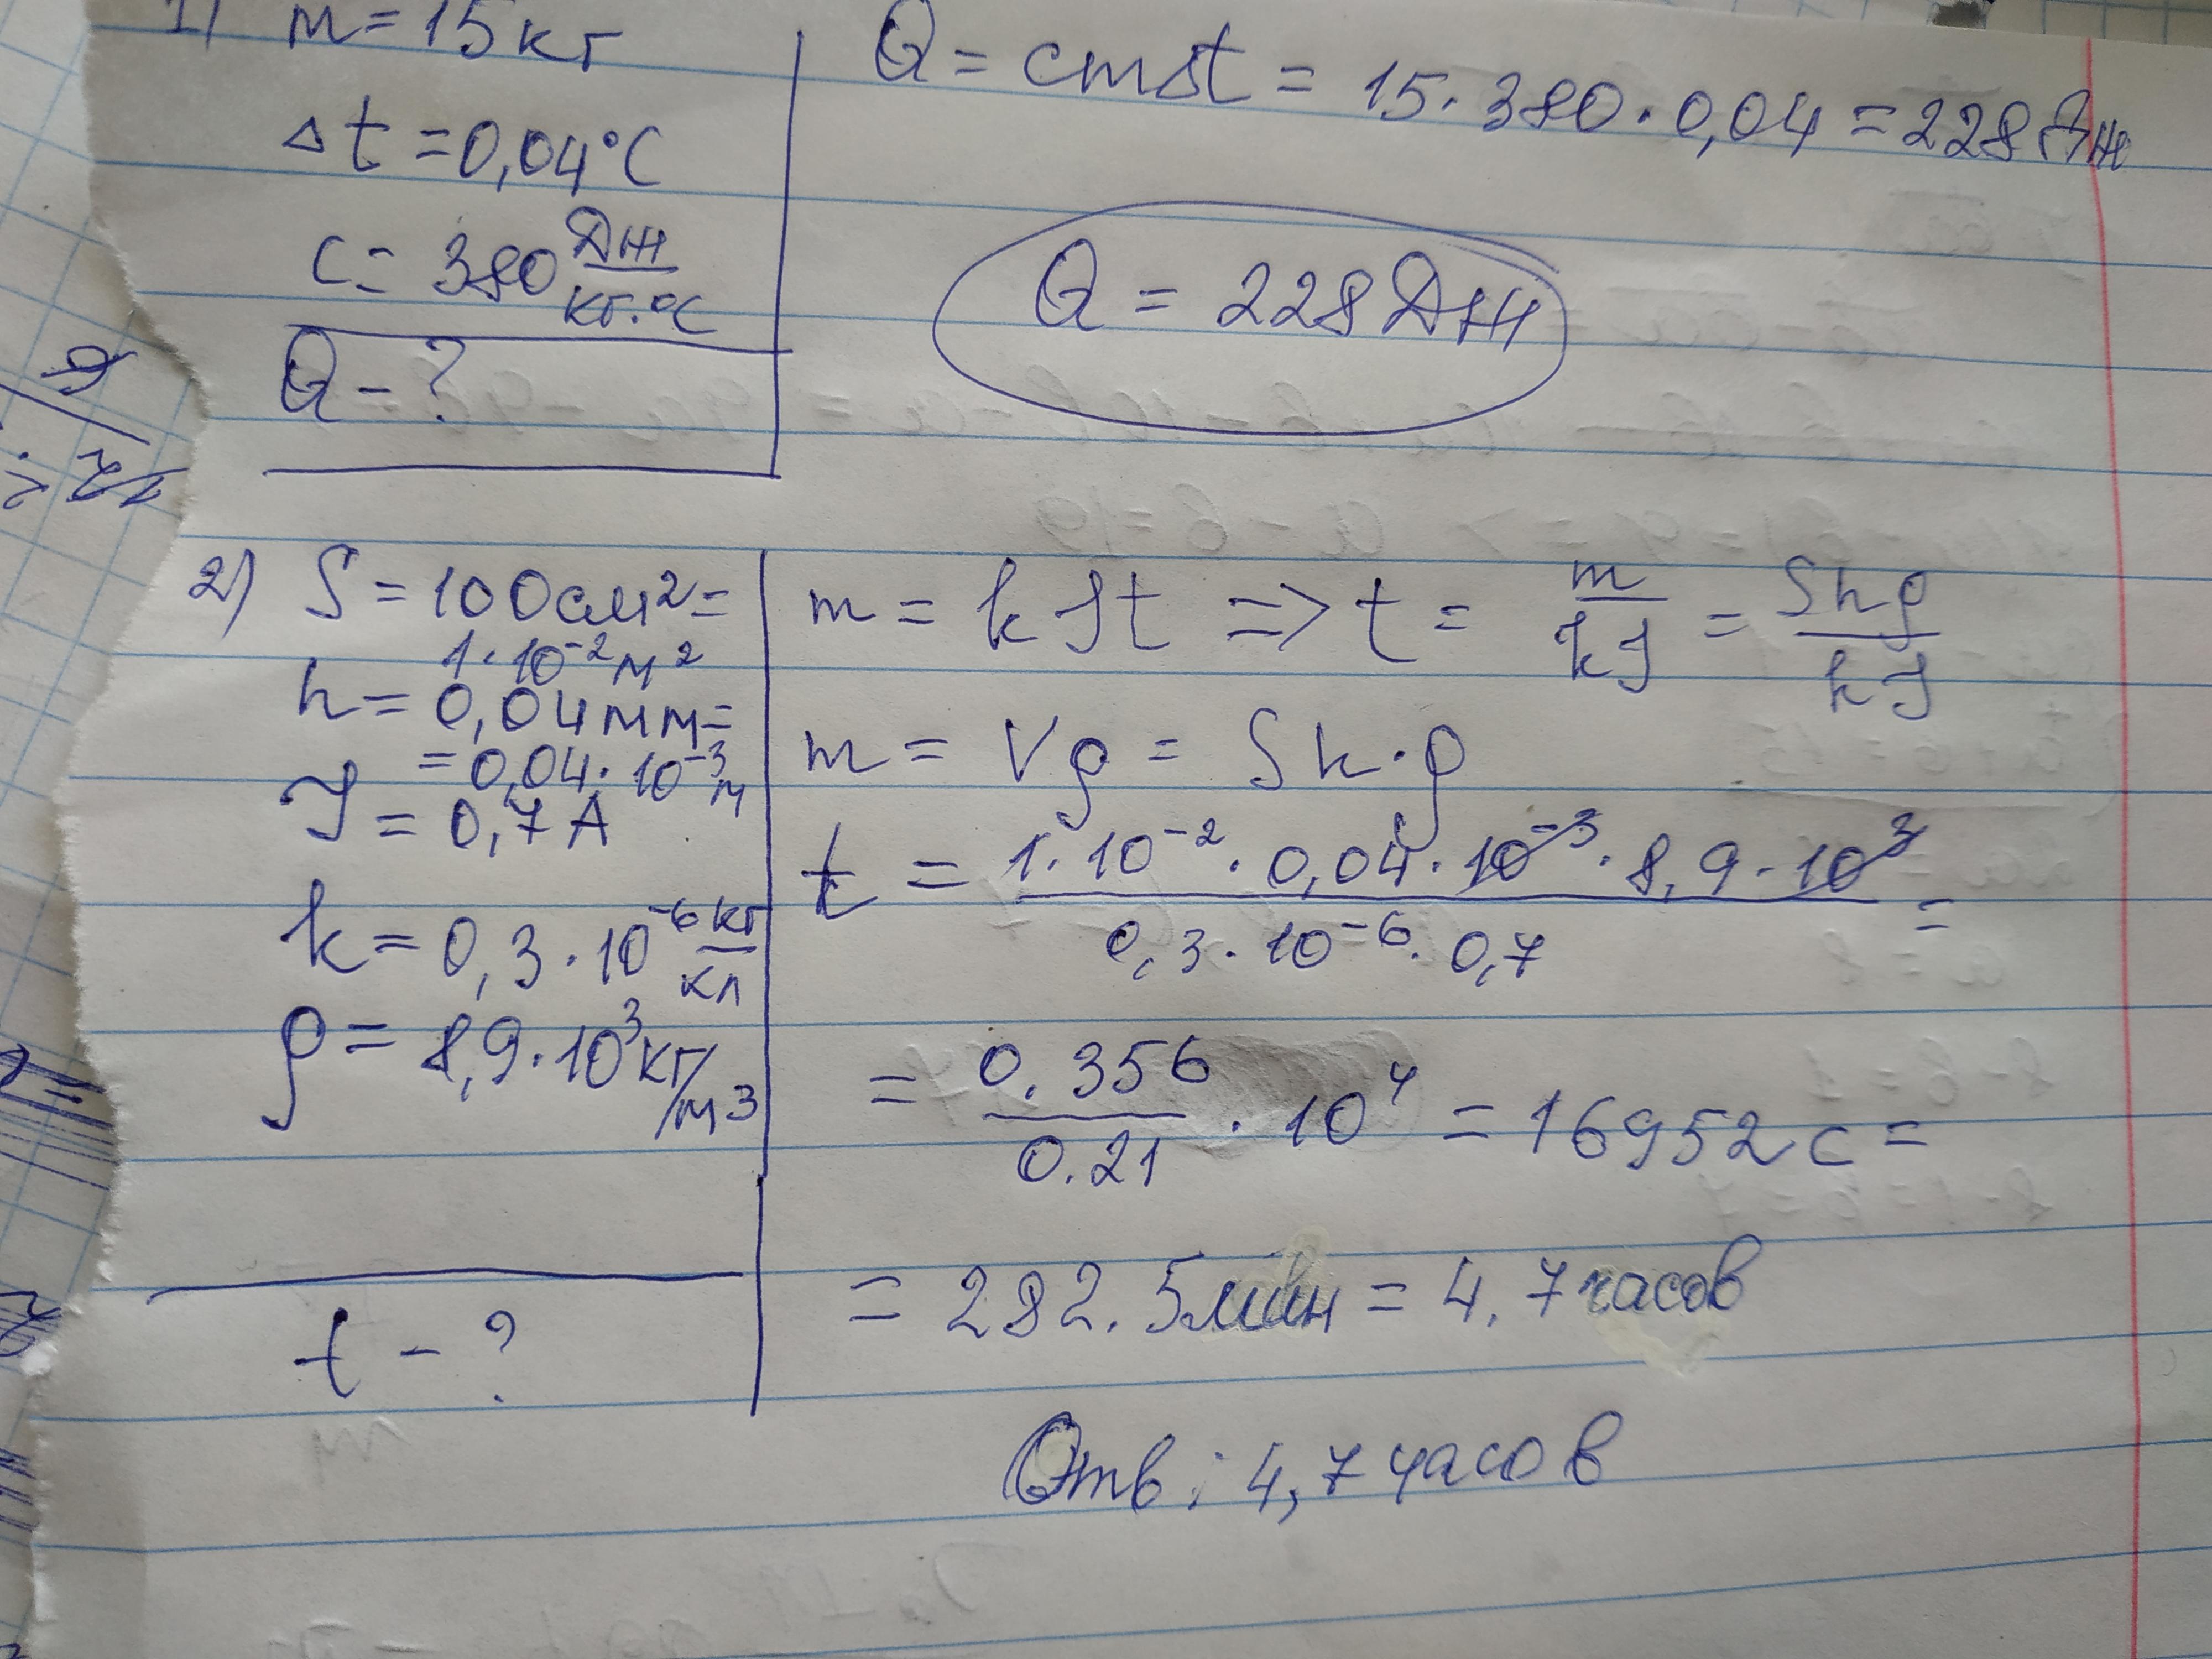 1) m = 15 кг
Δt = 0,04°C
c = 380 Дж/кг·°C
Q - ?
Q = cmΔt = 15 · 380 · 0,04 = 228 Дж
Q = 228 Дж
2) S = 100 см² =
1·10⁻² м²
h = 0,04 мм =
= 0,04·10⁻³ м
J = 0,7 A
k = 0,3·10⁻⁶ кг/кл
ρ = 8,9·10³ кг/м³
t - ?
m = kJt => t = m/kJ = Shρ/kJ
m = Vρ = Sh·ρ
t = 1·10⁻² · 0,04·10⁻³ · 8,9·10³ / 0,3·10⁻⁶ · 0,7 =
= 0.356/0.21 · 10⁴ = 16952 c =
= 282.5 мин = 4.7 часов
Отв: 4,7 часов